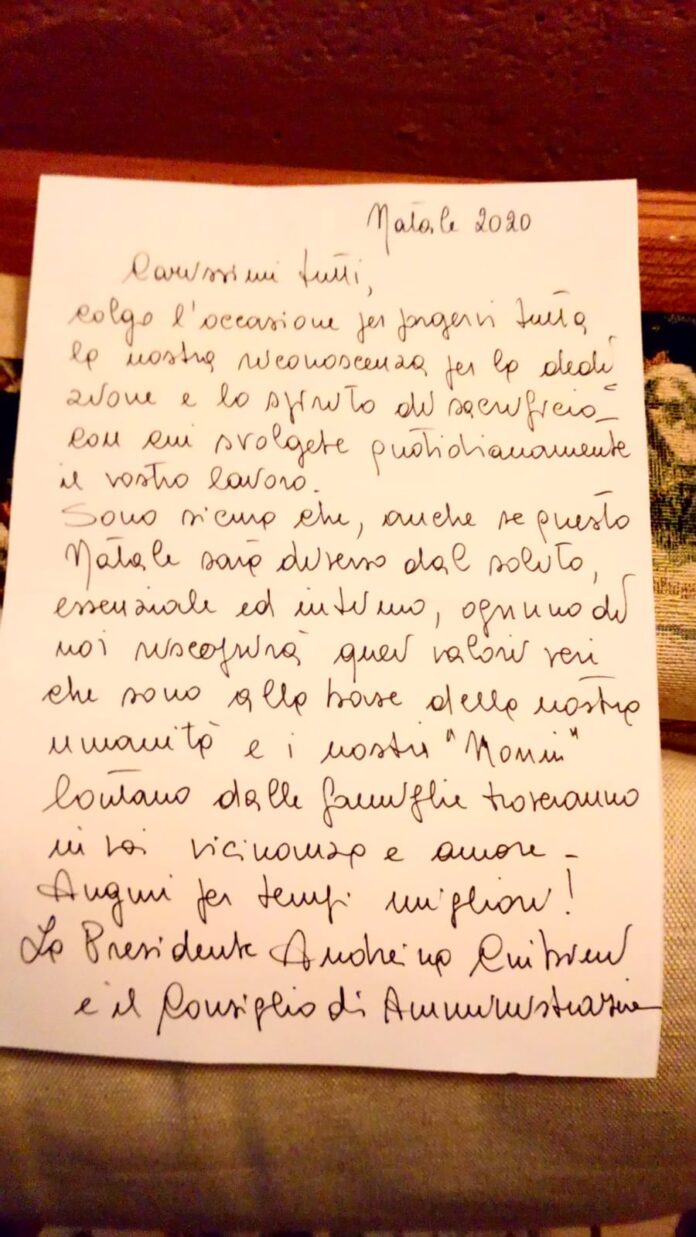 Natale 2020
Carissimi tutti,
colgo l'occasione per porgervi tutta
la nostra riconoscenza per la dedi
zione e lo spirito di sacrificio
con cui svolgete quotidianamente
il vostro lavoro.
Sono sicura che, anche se questo
Natale sarà diverso dal solito,
essenziale ed intimo, ognuno di
noi riscoprirà quei valori veri
che sono alla base della nostra
umanità e i nostri "Nonni"
lontano dalle famiglie troveranno
in voi vicinanza e amore -
Auguri per tempi migliori!
La Presidente Andreina
e il Consiglio di Amministrazione